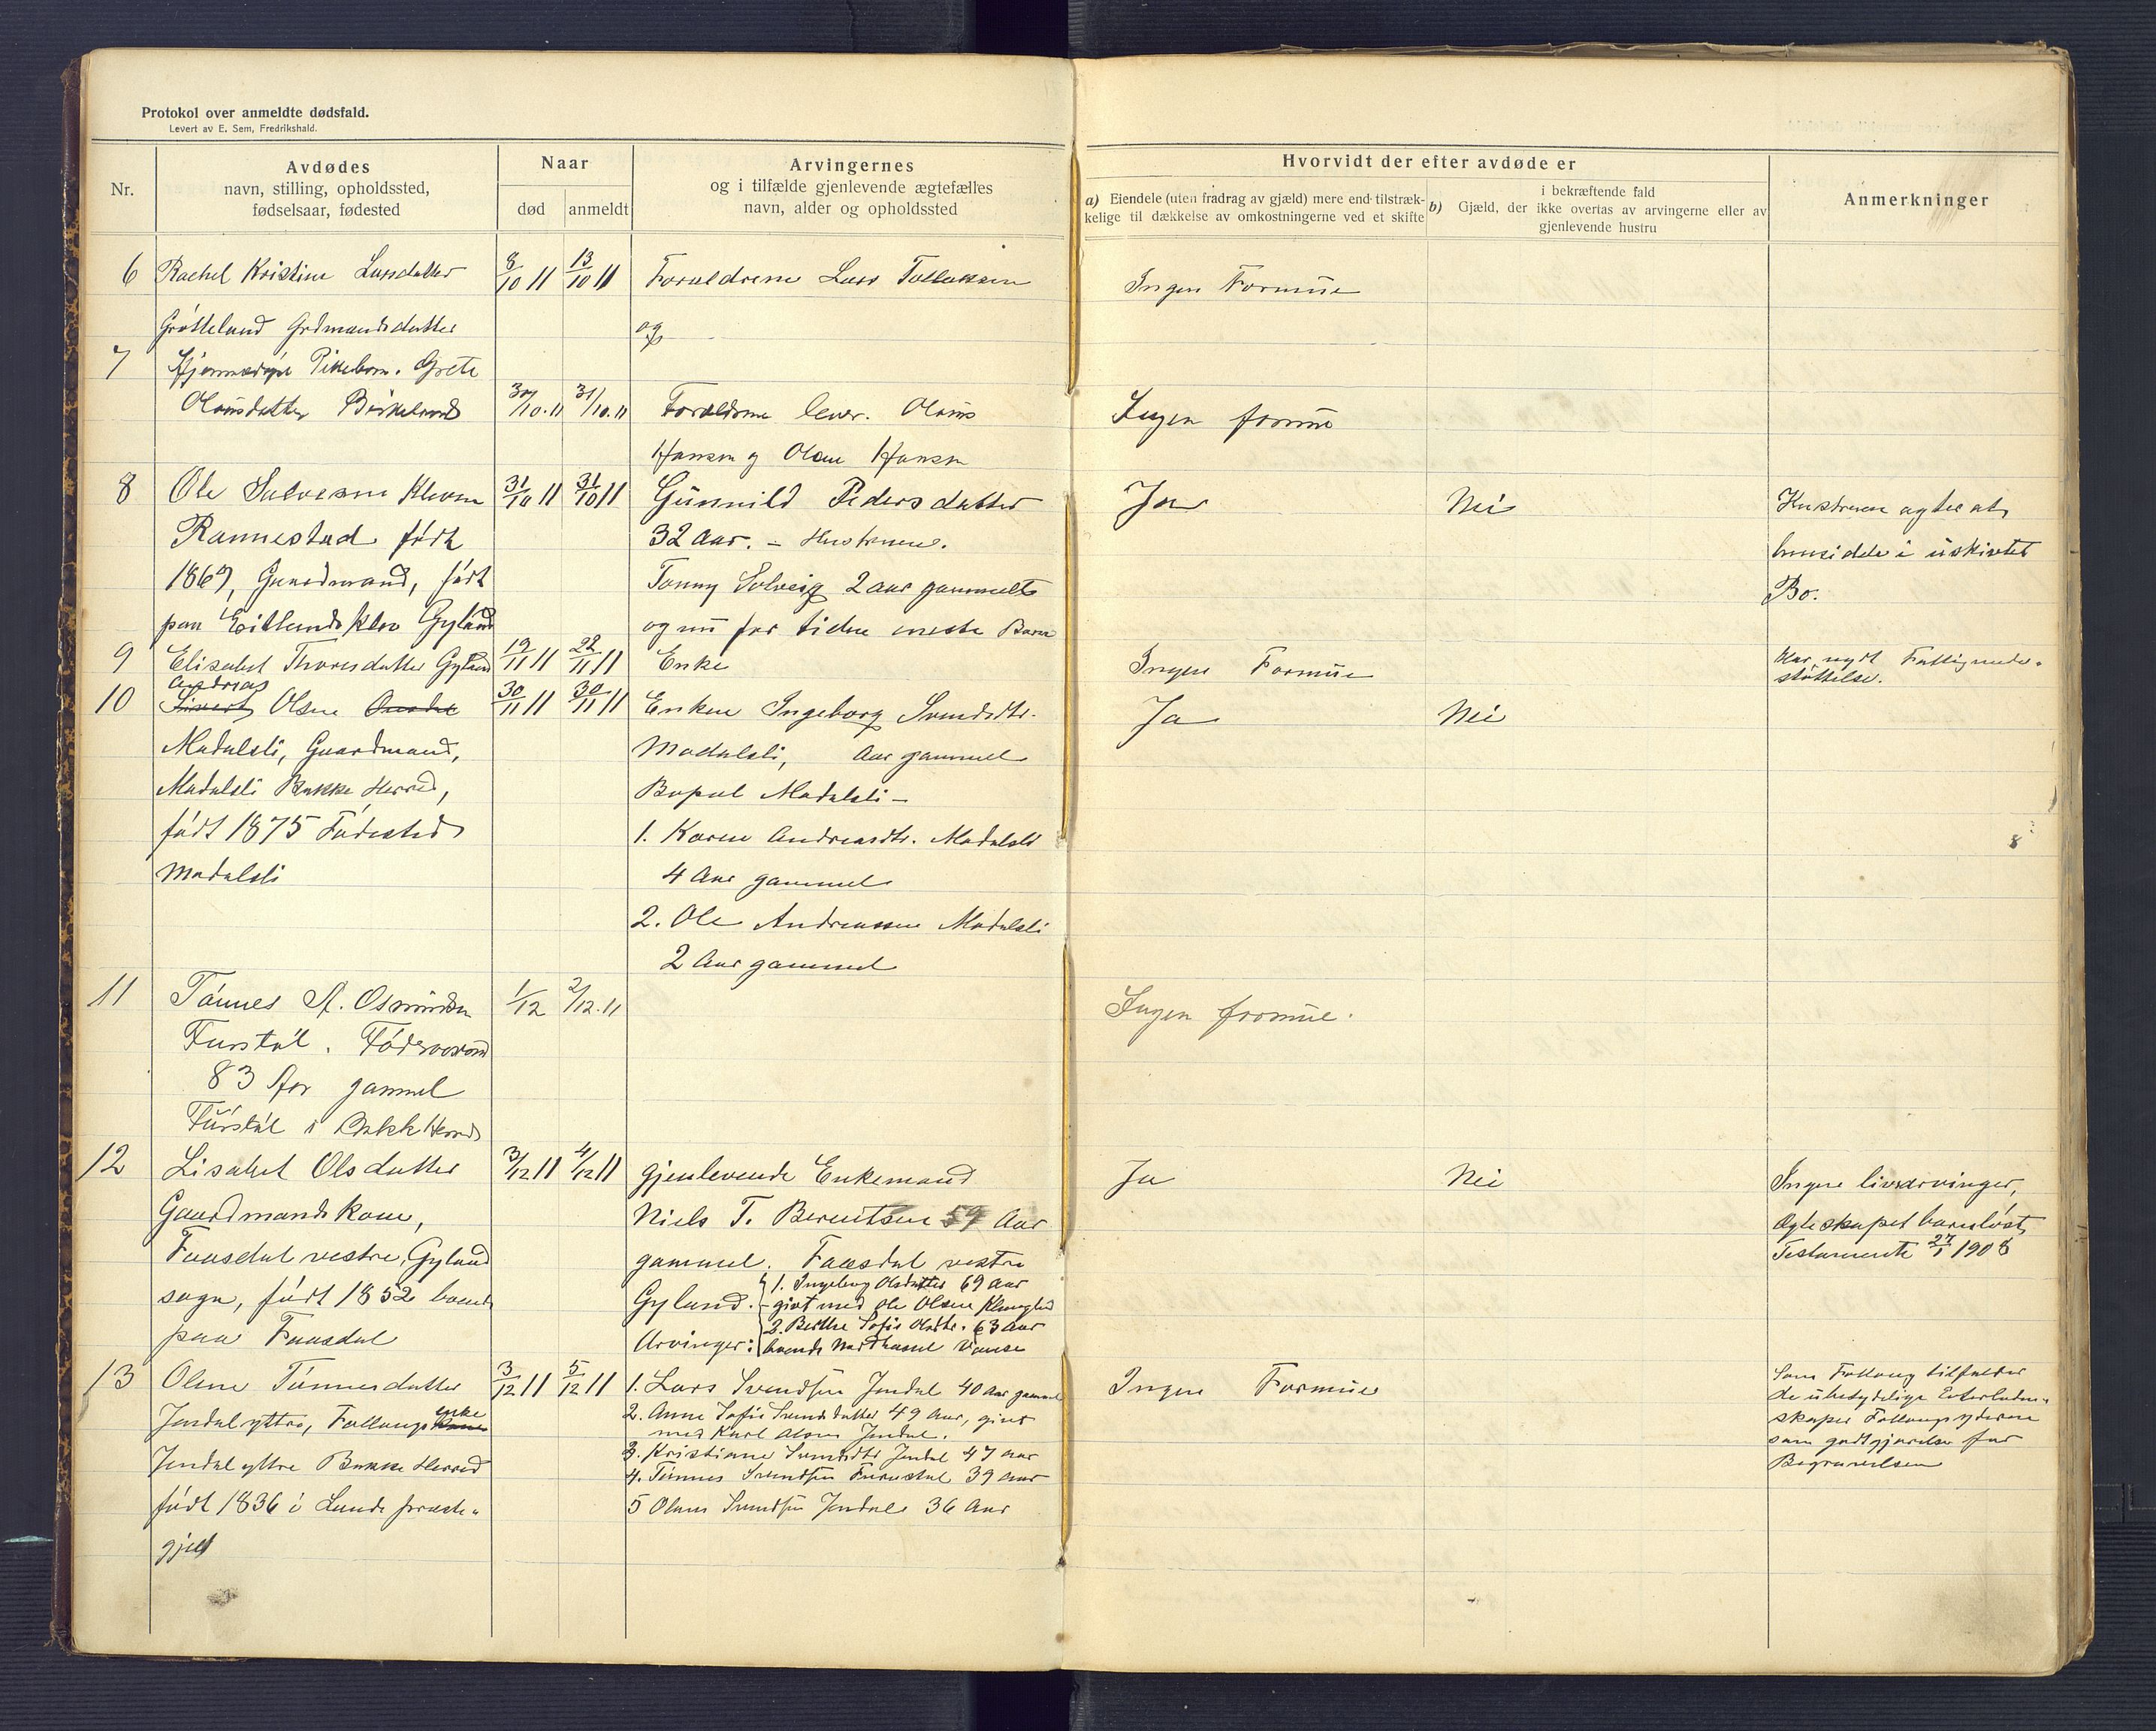 Protokol over anmeldte dødsfald.
Levert av E. Sem, Fredrikshald.
Nr.
Avdødes
navn, stilling, opholdssted,
fødselsaar, fødested
Naar
død
anmeldt
Arvingernes
og i tilfælde gjenlevende ægtefælles
navn, alder og opholdssted
Hvorvidt der efter avdøde er
a) Eiendele (uten fradrag av gjæld) mere end tilstræk-
kelige til dækkelse av omkostningerne ved et skifte
i bekræftende fald
b) Gjæld, der ikke overtas av arvingerne eller av
gjenlevende hustru
Anmerkninger
6 Rachel Kristine Larsdatter
Grötteland Grdmandsdatter
8/10 11
13/10 11
Forældrene Lars Tollaksen
og
Ingen Formue
7
Pikebarn. Grete
Olausdatter Birkeland
30/10.11
31/10.11
Forældrene lever. Olaus
Hansen og Olene Hansen
Ingen formue
8 Ole Salvesen Kleven
Rannestad født
1867, Gaardmand, født
paa Eitlandsklev Gyland
31/10 11
31/10 11
Gunnild Pedersdatter
32 Aar. - Hustruene.
Tonny Solveig 2 aar gammelt
og nu for tiden eneste Barn
Ja
Nei
Hustruen agter at
hensidde i uskiftet
Bo.
9 Elisabet Thoresdatter Gyland
19/11 11
22/11 11
Enke
Ingen Formue
Har nydt Fattigunder-
støttelse.
10 Andreas
Sivert Olsen
Madalsli, Gaardmand,
Madalsli Bakke Herred,
født 1875 Fødested
Madalsli
30/11 11
30/11 11
Enken Ingeborg Svendsdtr.
Madalsli, Aar gammel
Bopæl Madalsli -
1. Karen Andreasdtr. Madalsli
4 Aar gammel
2. Ole Andreassen Madalsli
2 Aar gammel
Ja
Nei
8
11 Tønnes A. Osmundsen
Furstøl. Føderaadsmand
83 Aar gammel
Furstøl i Bakke Herred
1/12
2/12.11
Ingen formue.
12 Lisabet Olsdatter
Gaardmandskone,
Faasdal vestre, Gyland
sogn, født 1852 boende
paa Faasdal
3/12 11
4/12 11
Gjenlevende Enkemand
Niels T. Berentsen 59 Aar
gammel. Faasdal vestre
Gyland.
Arvinger:
1. Ingeborg Olsdatter 69 Aar
givt med Ole Olsen
2. Berthe Sofie Olsdtr. 63 Aar
boende Nordhassel Vanse
Ja
Nei
Ingen livsarvinger,
Ægteskapet barnløst,
Testamente 27/1 1908
13 Olene Tønnesdatter
Jendal yttre, Føllaugs enke Kone
Jendal yttre Bakke Herred
født 1836 i Lunde præste-
gjeld
3/12 11
5/12 11
1. Lars Svendsen Jendal 40 Aar gammel
2. Anne Sofie Svendsdatter 49 Aar, givt
med Karl Olsen Jendal.
3. Kristiane Svendsdtr Jendal 47 Aar
4. Tønnes Svendsen Furustøl 39 Aar
5 Olaus Svendsen Jendal 36 Aar
Ingen Formue
Som Føllaug tilfalder
de ubetydelige Efterladen-
skaper Føllaugsyderne
som godtgjørelse for
Begravelsen